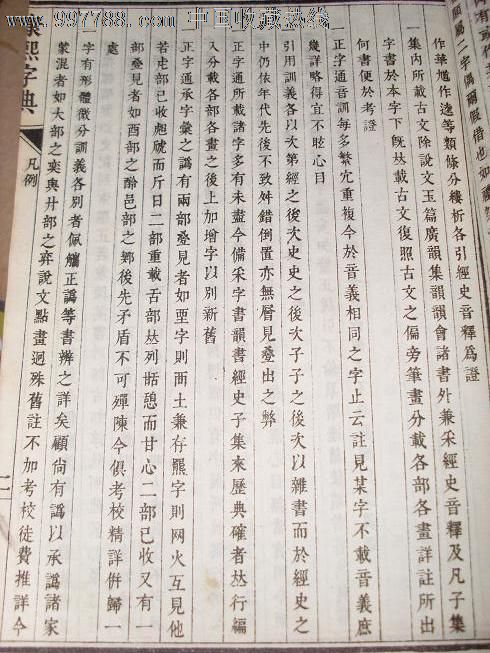 www.997788.com 中国收藏热线
等類條分縷析各引經史音釋爲證
一集內所載古文除說文玉篇廣韻集韻韻會諸書外兼采經史音釋及凡子集
字書於本字下旣竝載古文復照古文之偏旁筆畫分載各部各畫詳註所出
何書便於考證
一正字通音訓每多繁宂重複今於音義相同之字止云註見某字不載音義庶
幾詳略得宜不眩心目
一引用訓義各以次第經之後次史史之後次子子之後次以雜書而於經史之
中仍依年代先後不致舛錯倒置亦無層見疊出之弊
一正字通所載諸字多有未盡今備采字書韻書經史子集來歷典確者竝行編
入分載各部各畫之後上加增字以別新舊
一正字通承字彙之譌有兩部疊見者如垔字則襾土兼存羆字則网火互見他
若虍部已收虓虣而斤日二部重載舌部竝列甛憩而甘心二部已收又有一
部疊見者如酉部之酑邑部之鄸後先矛盾不可殫陳今俱考校精詳倂歸一
處
一字有形體微分訓義各別者佩觿正譌等書辨之詳矣顧尙有譌以承譌諸家
蒙混者如大部之奕與廾部之弈說文點畫迥殊舊註不加考校徒費推詳今
康熙字典 凡例 二